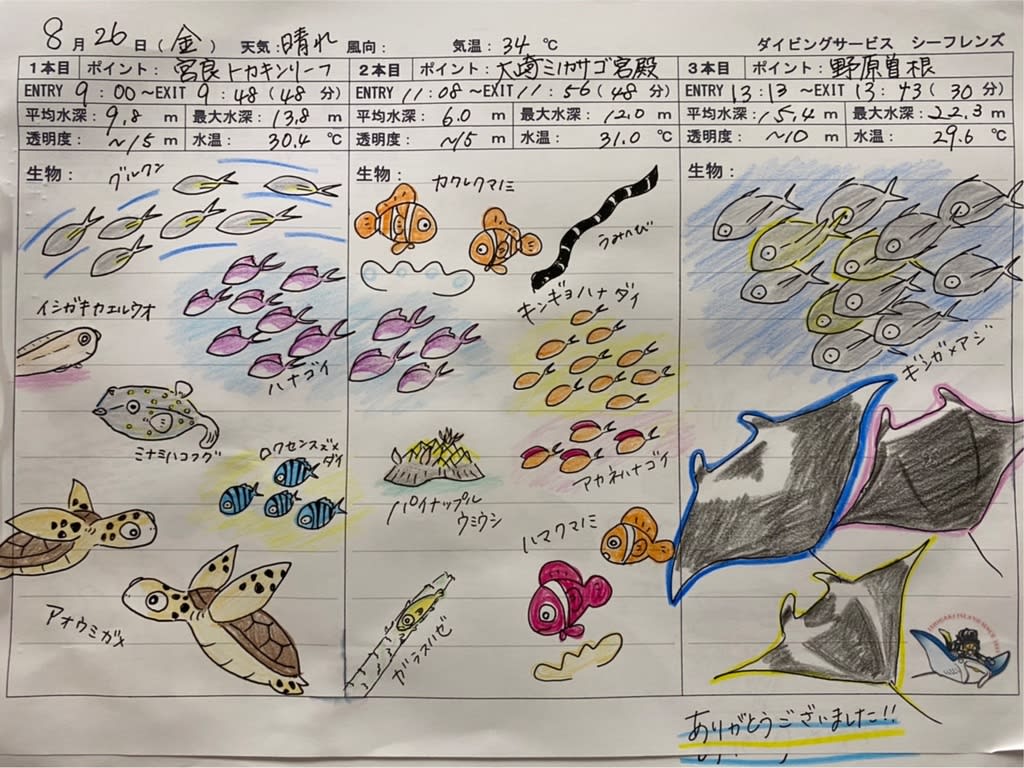 8月26日(金) 天気:晴れ 風向: 気温:34℃ ダイビングサービス シーフレンズ
1本目 ポイント:宮良トカキンリーフ
ENTRY 9:00~EXIT 9:48(48分)
平均水深:9.8m 最大水深:13.8m
透明度:~15m 水温:30.4℃
生物:
グルクン
イシガキカエルウオ
ハナゴイ
ミナミハコフグ
ロクセンスズメ
ダイ
アオウミガメ
2本目 ポイント:大崎ミノカサゴ宮殿
ENTRY 11:08~EXIT 11:56(48分)
平均水深:6.0m 最大水深:12.0m
透明度:~15m 水温:31.0℃
生物:
カクレクマノミ
うみへび
キンギョハナダイ
アカネハナゴイ
パイナップル
ウミウシ
ハマクマノミ
ガラスハゼ
3本目 ポイント:野原曽根
ENTRY 13:13~EXIT 13:43(30分)
平均水深:15.4m 最大水深:22.3m
透明度:~10m 水温:29.6℃
生物:
ギンガメアジ
ありがとうございました!!